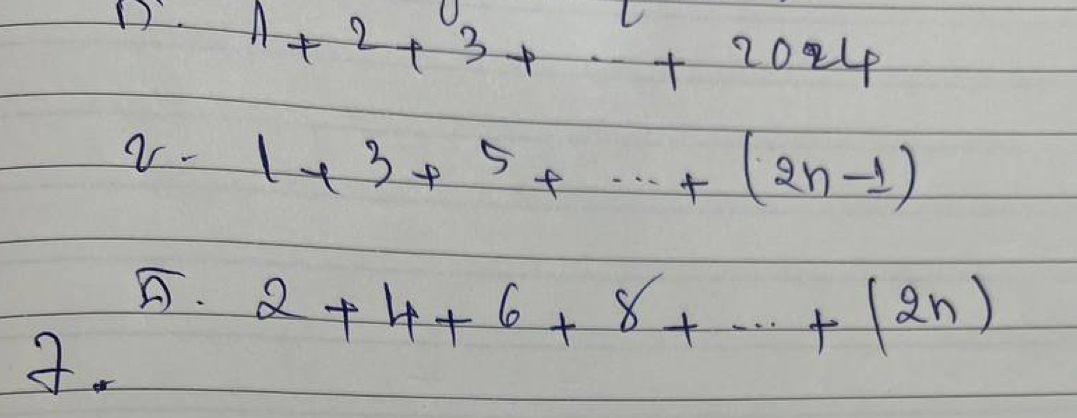 1 + 2 + 3 + ... + 2024
1 + 3 + 5 + ... + (2n-1)
2 + 4 + 6 + 8 + ... + (2n)
7.